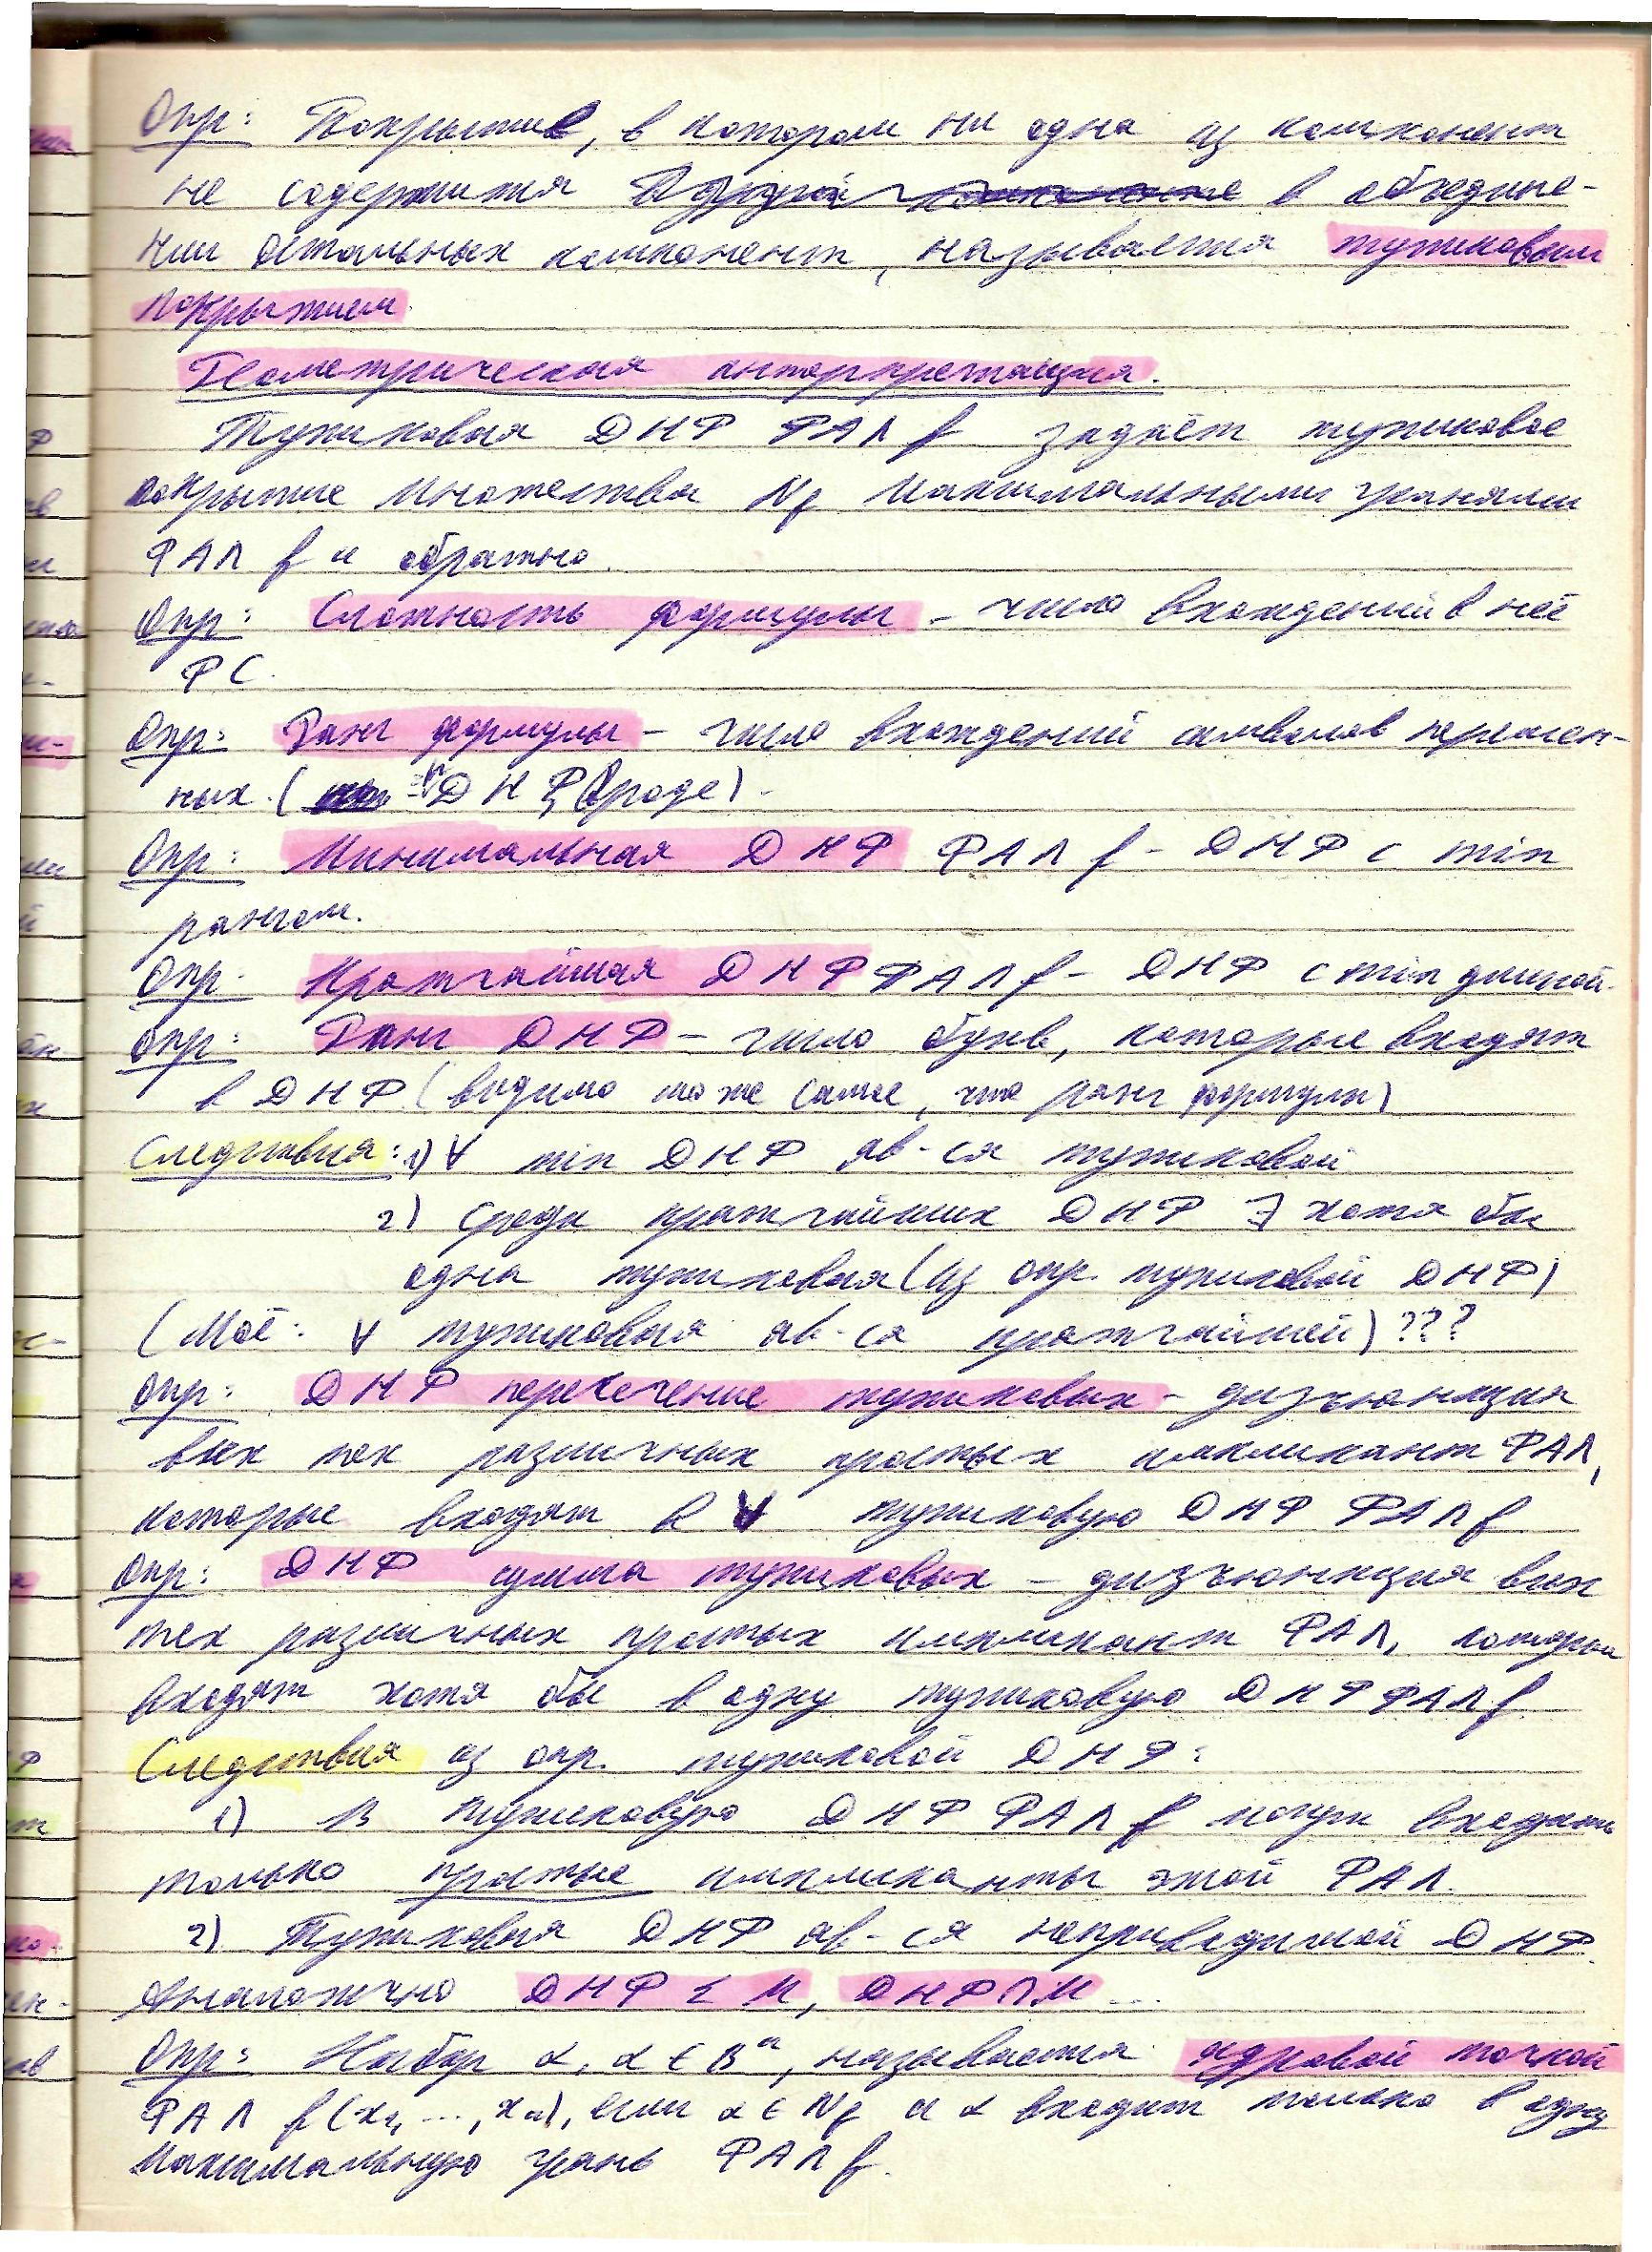 Опр: Покрытие, в котором ни одна из компонент
не содержится в объедине-
нии остальных компонент, называется тупиковым
покрытием.
Геометрическая интерпретация.
Тупиковая ДНФ ФАЛ f задаёт тупиковое
покрытие множества N_f максимальными гранями
ФАЛ f и обратно.
Опр: Сложность формулы – число вхождений в неё
ФС.
Опр: Ранг формулы – число вхождений символов перемен-
ных. ( ДНФ, вроде).
Опр: Минимальная ДНФ ФАЛ f – ДНФ с min
рангом.
Опр: Кратчайшая ДНФ ФАЛ f – ДНФ с min длиной.
Опр: Ранг ДНФ – число букв, которые входят
в ДНФ (видимо то же самое, что ранг формулы)
Следствия: 1) ∀ min ДНФ яв-ся тупиковой
2) среди кратчайших ДНФ ∃ хотя бы
одна тупиковая (из опр. тупиковой ДНФ)
(Моё: ∀ тупиковая яв-ся кратчайшей) ???
Опр: ДНФ пересечение тупиковых – дизъюнкция
всех тех различных простых импликант ФАЛ,
которые входят в ∀ тупиковую ДНФ ФАЛ f
Опр: ДНФ сумма тупиковых – дизъюнкция всех
тех различных простых импликант ФАЛ, которые
входят хотя бы в одну тупиковую ДНФ ФАЛ f
Следствия из опр. тупиковой ДНФ:
1) В тупиковую ДНФ ФАЛ f могут входить
только простые импликанты этой ФАЛ.
2) Тупиковая ДНФ яв-ся неприводимой ДНФ.
Аналогично ДНФ Σ М, ДНФ ∩ М ...
Опр: Набор α, α ∈ Bⁿ, называется ядровой точкой
ФАЛ f(x₁, ..., xₙ), если α ∈ N_f и α входит только в одну
максимальную грань ФАЛ f.